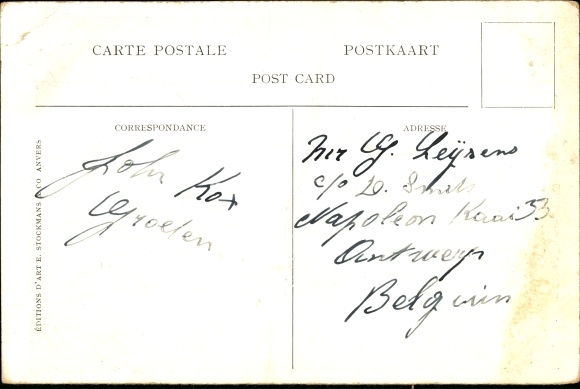 CARTE POSTALE
POSTKAART
POST CARD
CORRESPONDANCE
ADRESSE
John Kox
Groeten
Mr G. Leÿsens
c/o D. Smets
Napoleon Kaai 53
Antwerp
Belgium
ÉDITIONS D'ART E. STOCKMANS & CO ANVERS